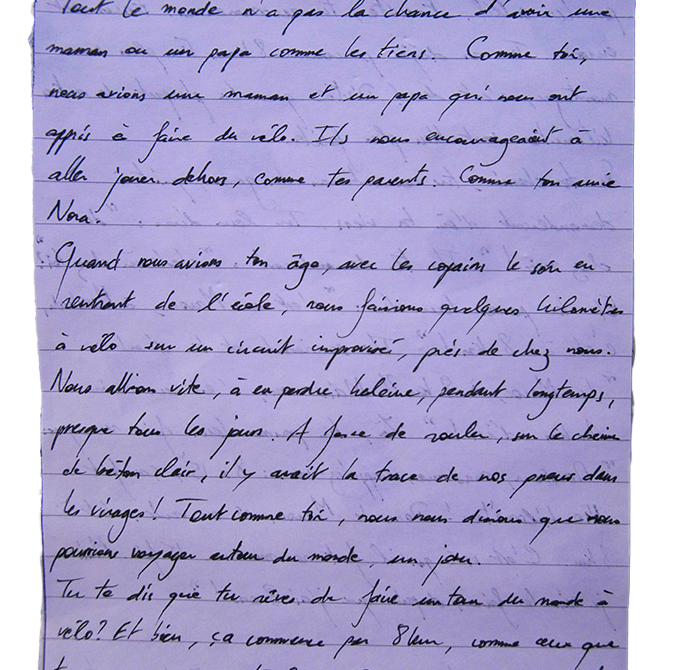 Tout le monde n'a pas la chance d'avoir une
maman ou un papa comme les tiens. Comme toi,
nous avions une maman et un papa qui nous ont
appris à faire du vélo. Ils nous encourageaient à
aller jouer dehors, comme tes parents. Comme ton amie
Nora.
Quand nous avions ton âge, avec les copains le soir en
rentrant de l'école, nous faisions quelques kilomètres
à vélo sur un circuit improvisé, près de chez nous.
Nous allions vite, à en perdre haleine, pendant longtemps,
presque tous les jours. A force de rouler, sur le chemin
de béton clair, il y avait la trace de nos pneus dans
les virages! Tout comme toi, nous nous disions que nous
pourrions voyager autour du monde, un jour.
Tu te dis que tu rêves de faire un tour du monde à
vélo? Et bien, ça commence par 8km, comme ceux que